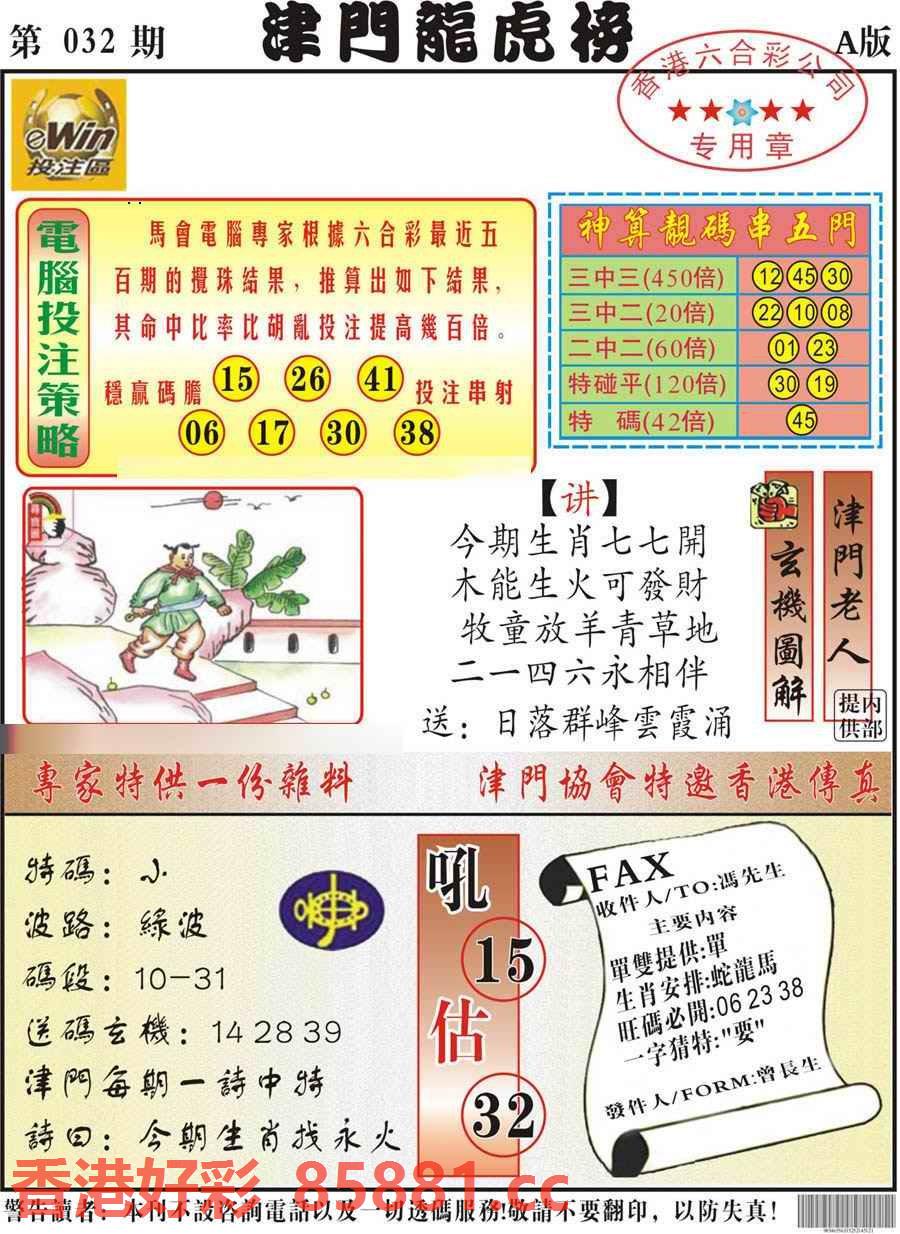 第 032 期
津門龍虎榜
A版
香港六合彩公司
专用章
eWin
投注區
電腦投注策略
馬會電腦專家根據六合彩最近五
百期的攪珠結果，推算出如下結果，
其命中比率比胡亂投注提高幾百倍。
穩贏碼膽 15 26 41 投注串射
06 17 30 38
神算靚碼串五門
三中三(450倍) 12 45 30
三中二(20倍) 22 10 08
二中二(60倍) 01 23
特碰平(120倍) 30 19
特 碼(42倍) 45
【讲】
今期生肖七七開
木能生火可發財
牧童放羊青草地
二一四六永相伴
送：日落群峰雲霞涌
玄機圖解
津門老人
提供
内部
專家特供一份雜料
津門協會特邀香港傳真
特碼：小
波路：綠波
碼段：10-31
送碼玄機：14 28 39
津門每期一詩中特
詩曰：今期生肖找永火
吼
15
估
32
FAX
收件人/TO:馮先生
主要内容
單雙提供:單
生肖安排:蛇龍馬
旺碼必開:06 23 38
一字猜特:"要"
發件人/FORM:曾長生
香港好彩 85881.cc
警告讀者：本刊不設咨詢電話以及一切透碼服務!敬請不要翻印，以防失真！